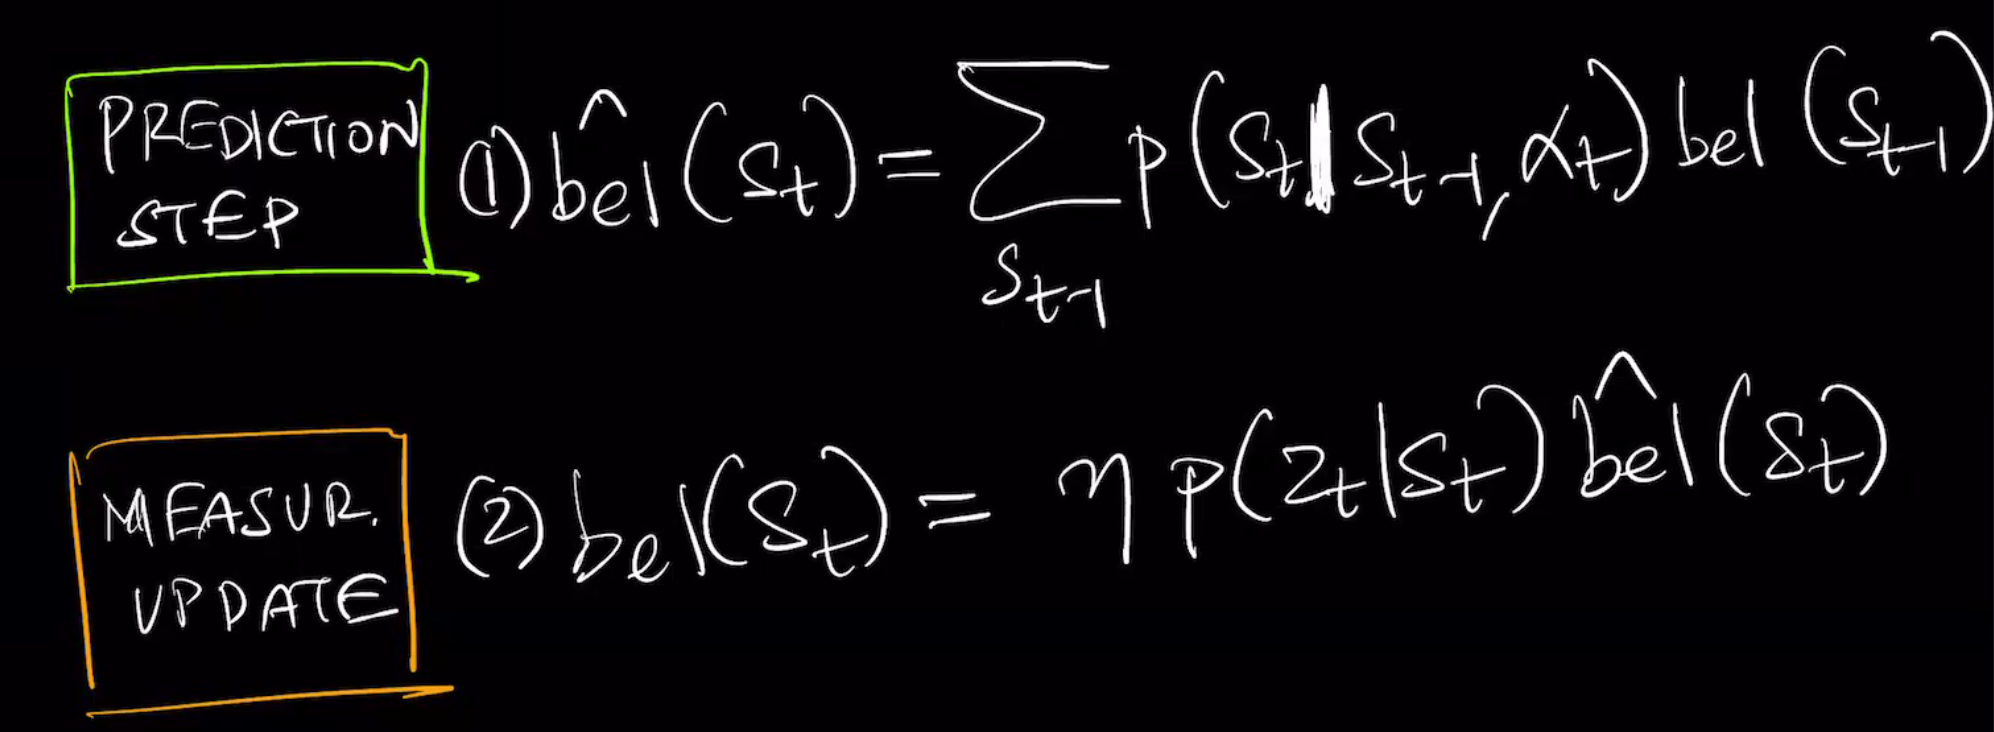 PREDICTION
STEP
(1) bel̂ (s_t) = Σ_{s_{t-1}} p(s_t | s_{t-1}, α_t) bel (s_{t-1})
MEASUR.
UPDATE
(2) bel(s_t) = η p(z_t|s_t) bel̂(s_t)